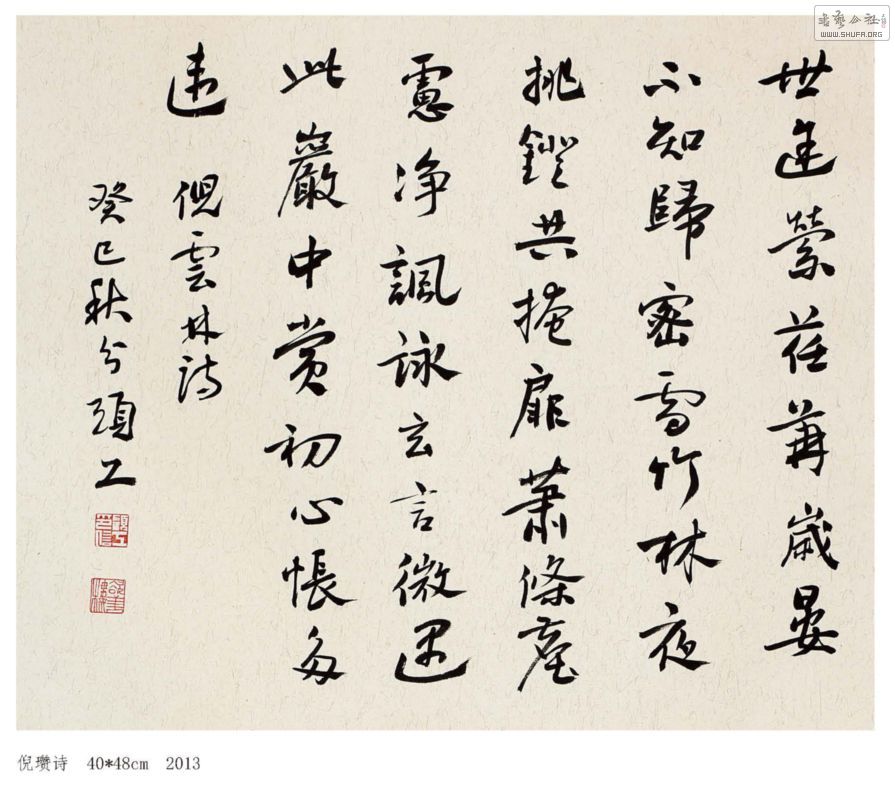 書藝公社
WWW.SHUFA.ORG
世途縈荏苒歲晏
不知歸密雪竹林夜
挑鐙共掩扉蕭條塵
慮净諷詠玄言微遇
此巖中賞初心悵多
違 倪雲林詩
癸巳秋分顧工
倪瓒诗 40*48cm 2013